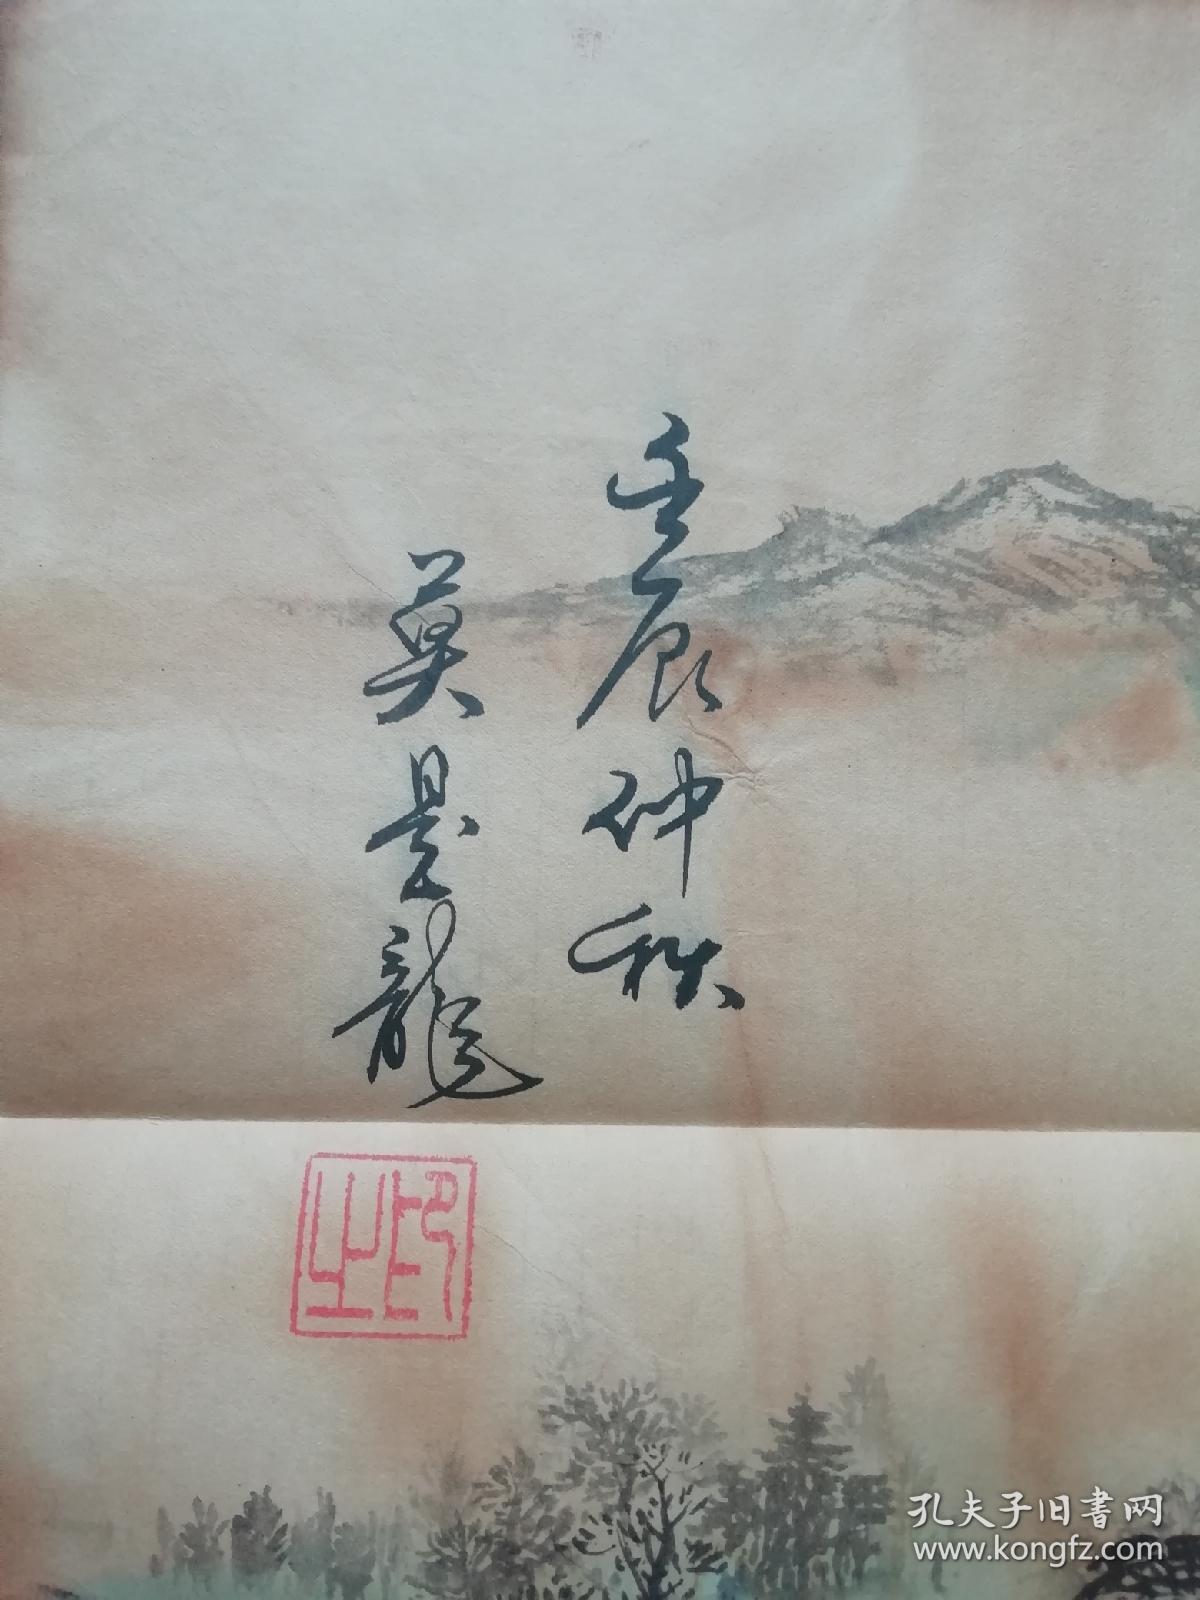 壬辰仲秋
莫是龍
之印
孔夫子旧書网
www.kongfz.com